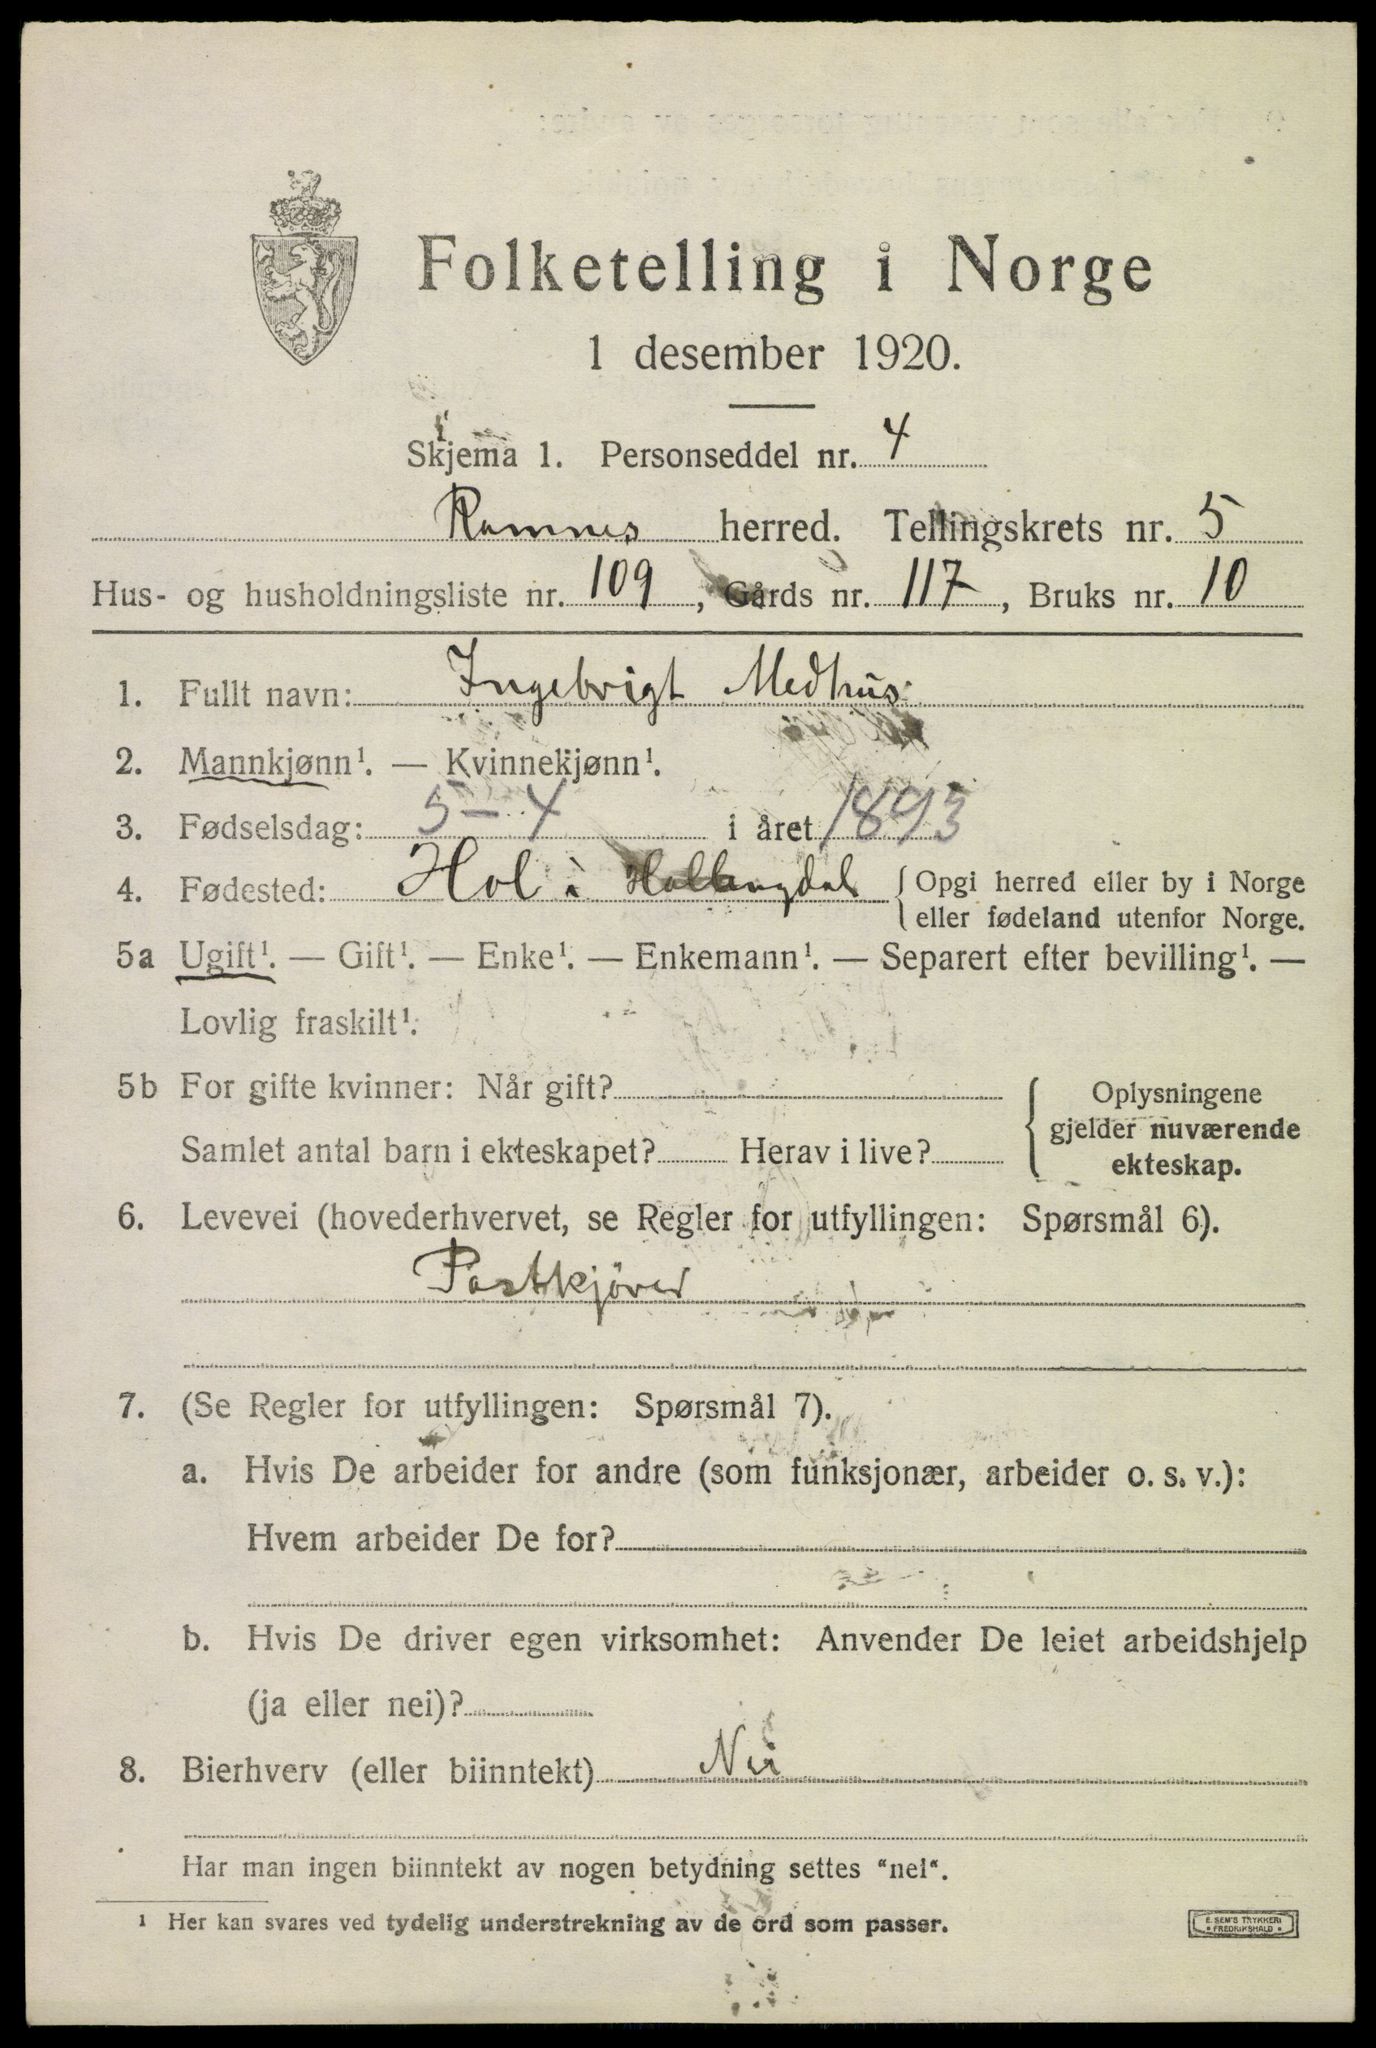 Folketelling i Norge
1 desember 1920.
Skjema 1. Personseddel nr. 4
Ramnes herred. Tellingskrets nr. 5
Hus- og husholdningsliste nr. 109, Gårds nr. 117, Bruks nr. 10
1. Fullt navn: Ingebrigt Medhus
2. Mannkjønn¹. — Kvinnekjønn¹.
3. Fødselsdag: 5-4 i året 1893
4. Fødested: Hol i Hallingdal { Opgi herred eller by i Norge
eller fødeland utenfor Norge.
5a Ugift¹. — Gift¹. — Enke¹. — Enkemann¹. — Separert efter bevilling¹. —
Lovlig fraskilt¹.
5b For gifte kvinner: Når gift? { Oplysningene
gjelder nuværende
Samlet antal barn i ekteskapet? Herav i live?
ekteskap.
6. Levevei (hovederhvervet, se Regler for utfyllingen: Spørsmål 6).
Postkjører
7. (Se Regler for utfyllingen: Spørsmål 7).
a. Hvis De arbeider for andre (som funksjonær, arbeider o. s. v.):
Hvem arbeider De for?
b. Hvis De driver egen virksomhet: Anvender De leiet arbeidshjelp
(ja eller nei)?
8. Bierhverv (eller biinntekt) Nei
Har man ingen biinntekt av nogen betydning settes "nei".
¹ Her kan svares ved tydelig understrekning av de ord som passer.
E. SEM'S TRYKKERI
• FREDRIKSHALD •